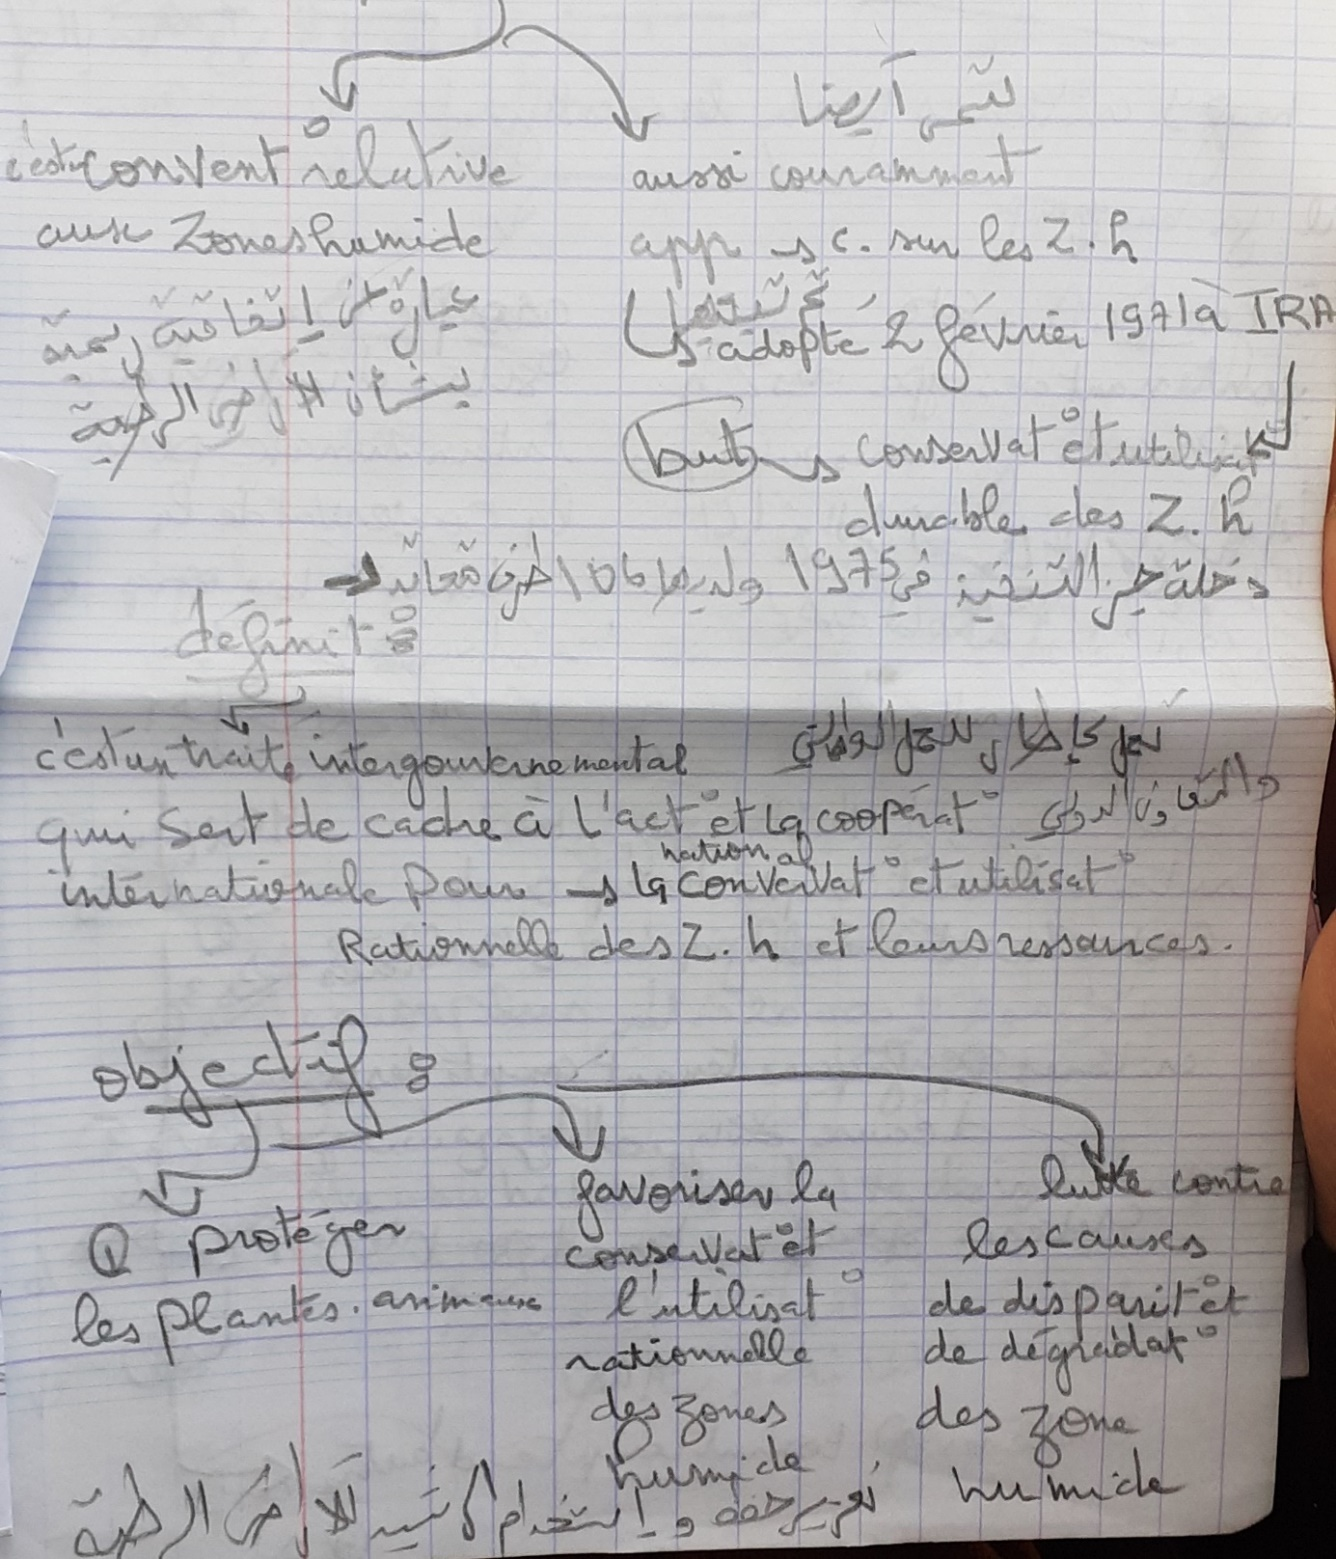 تسمى أيضا
c'est convent° relative
aux Zones humide
عبارة عن إتفاقية رسمية
بشأن الأراضي الرطبة
aussi couramment
app → c. sur les Z.h
adopté 2 février 1971 à IRA
but → conservat° et utilisat°
durable des Z.h
دخلة حيز التنفيذ في 1975 ولديها 106 أطراف
définit° :
c'est un traité intergouvernemental
qui sert de cadre à l'act° et la coopérat°
national
internationale pour → la convervat° et utilisat°
Rationnelle des Z.h et leurs ressources.
والتعاون الدولي
objectif :
① protéger
les plantes. animaux
favoriser la
conservat° et
l'utilisat°
rationnelle
des zones
humide
lutte contre
les causes
de disparit° et
de dégradat°
des zone
humide
و إستخدام الأراضي الرطبة